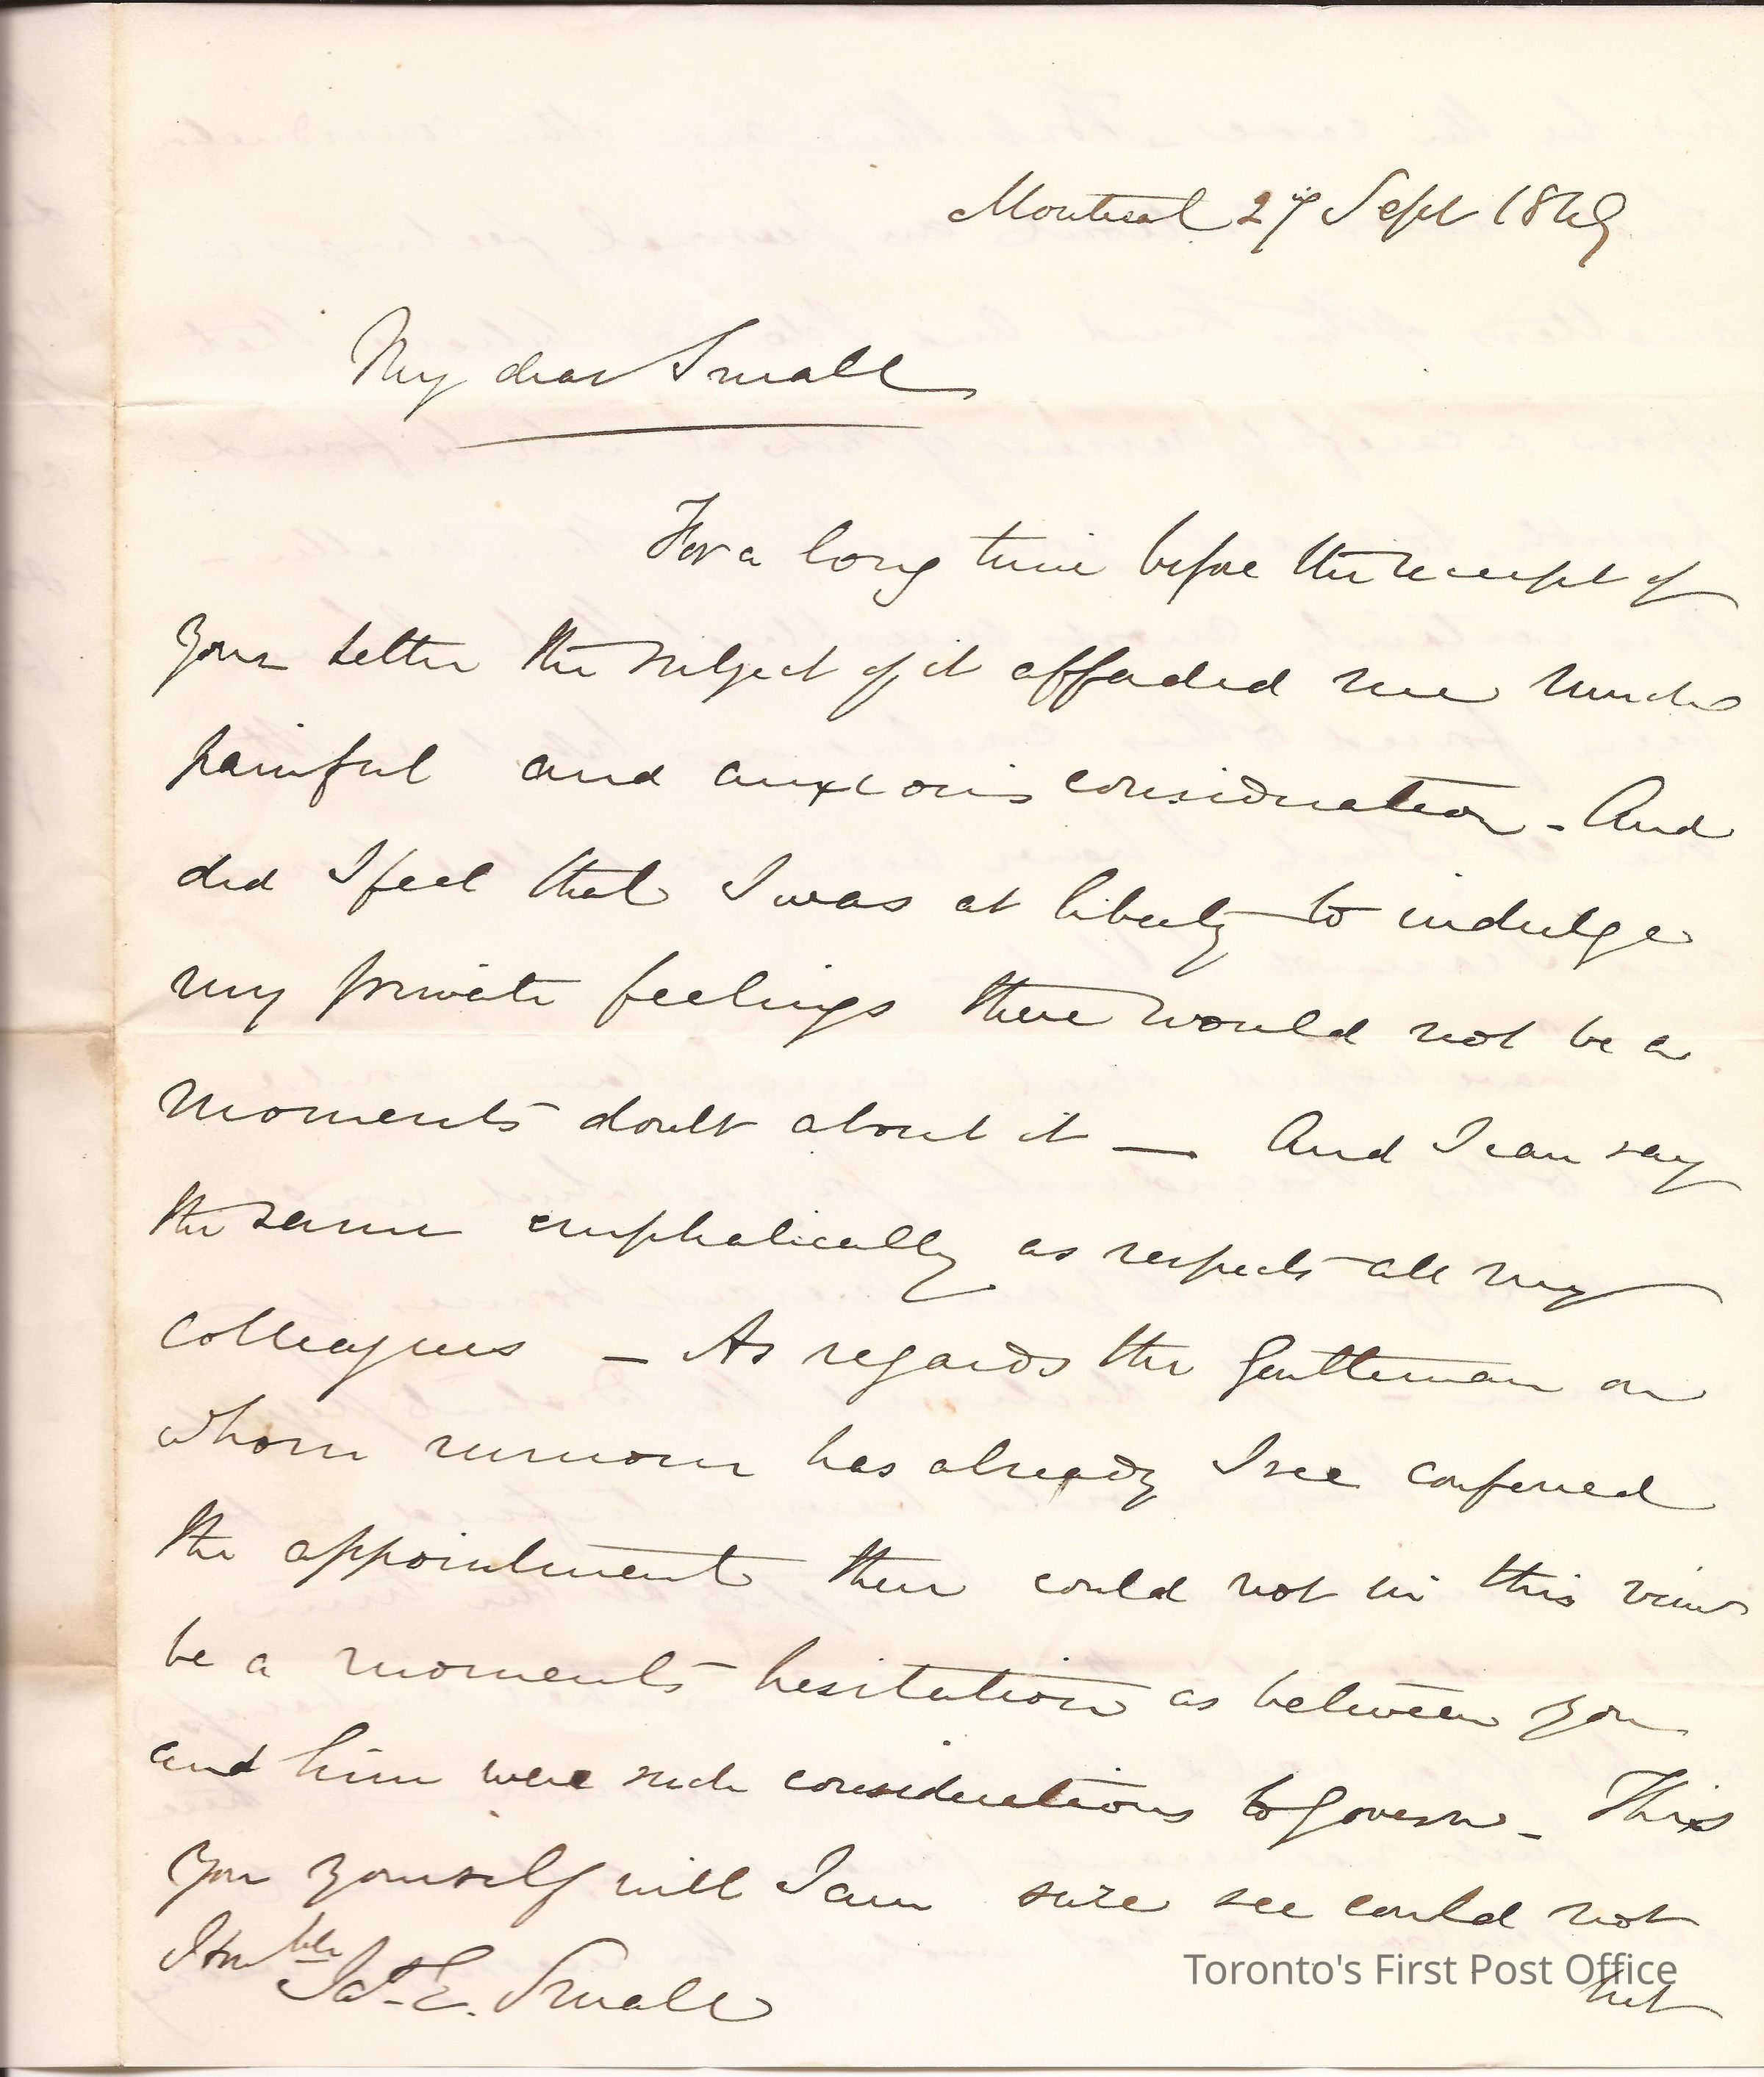 Montreal 27 Sept 1849
My dear Small
For a long time before the receipt of
your letter the subject of it afforded me much
painful and anxious consideration - And
did I feel that I was at liberty to indulge
my private feelings there would not be a
moments doubt about it — And I can say
the same emphatically as respects all my
colleagues - As regards the Gentleman on
whom rumour has already I see conferred
the appointment there could not in this view
be a moments hesitation as between you
and him were such considerations to govern - This
you yourself will I am sure see could not
but
Honble Jas. E. Small
Toronto's First Post Office